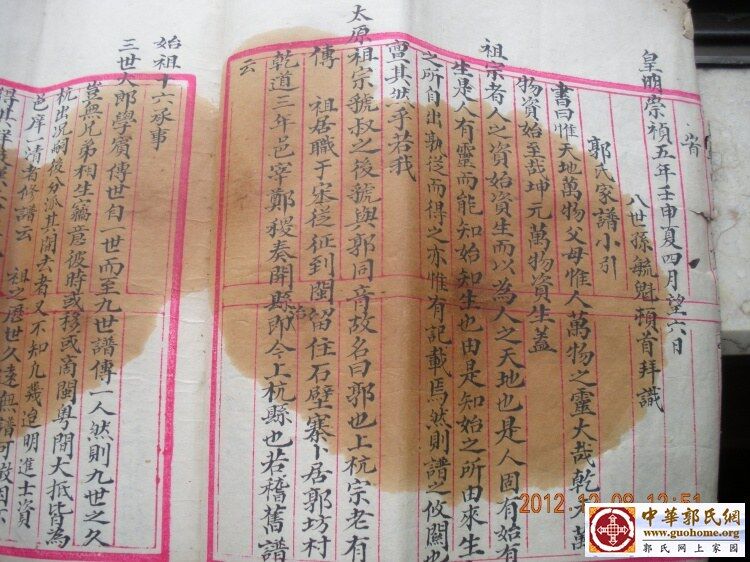 省
皇明崇禎五年壬申夏四月望六日
八世孫毓魁頓首拜識
郭氏家譜小引
書曰惟天地萬物父母惟人萬物之靈大哉乾元萬
物資始至哉坤元萬物資生蓋
祖宗者人之資始資生而以為人之天地也是人固有始有
生是人有靈而能知始知生也由是知始之所由來生
之所自出勤從而得之亦惟有記載焉然則譜之攸關也
豈其然乎若我
太原祖宗虢叔之後虢與郭同音故名曰郭也上杭宗老有
傳 祖居職于宋從征到閩留住石壁寨卜居郭坊村
乾道三年邑宰鄭稷奏開縣治即今上杭縣也若稽舊譜
云
始祖十六承事
三世大郎學賓傳世自一世而至九世譜傳一人然則九世之久
豈無兄弟相生竊意彼時或移或商閩粵開大抵皆為
杭出況嗣後分派其開去者又不知凡幾遑明進士資
邑庠 清者修譜云 祖之歷世久遠無譜可
2012.12.08 12:51
中華郭氏網
www.guohome.org
郭氏网上家园